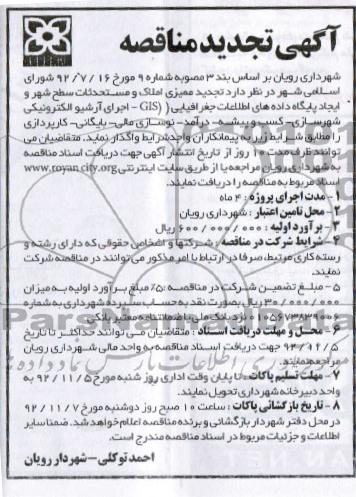 آگهی تجدید مناقصه
شهرداری رویان بر اساس بند ۳ مصوبه شماره ۹ مورخ ۹۲/۷/۱۶ شورای
اسلامی شهر در نظر دارد تجدید ممیزی املاک و مستحدثات سطح شهر و
ایجاد پایگاه داده های اطلاعات جغرافیایی (GIS - اجرای آرشیو الکترونیکی
شهرسازی-کسب و پیشه- درآمد- نوسازی مالی- بایگانی- کارپردازی
را مطابق شرایط زیر به پیمانکاران واجد شرایط واگذار نماید. متقاضیان می
توانند ظرف مدت ۱۰ روز از تاریخ انتشار آگهی جهت دریافت اسناد مناقصه
به شهرداری رویان مراجعه یا از طریق سایت اینترنتی www.royancity.org
اسناد مربوط به مناقصه را دریافت نمایند.
۱- مدت اجرای پروژه : ۴ ماه
۲- محل تامین اعتبار : شهرداری رویان
۳- برآورد اولیه : ۶۰۰/۰۰۰/۰۰۰ ریال
۴- شرایط شرکت در مناقصه : شرکتها و اشخاص حقوقی که دارای رشته و
رسته کاری مرتبط، صرفا در ارتباط با امر مذکور می توانند در مناقصه شرکت
نمایند.
۵- مبلغ تضمین شرکت در مناقصه : ۵٪ مبلغ برآورد اولیه به میزان
۳۰/۰۰۰/۰۰۰ ریال بصورت نقد به حساب سپرده شهرداری به شماره
نزد بانک ملی یا ضمانتنامه معتبر بانکی
۶- محل و مهلت دریافت اسناد : متقاضیان می توانند حداکثر تا تاریخ
جهت دریافت اسناد مناقصه به واحد مالی شهرداری رویان
مراجعه نمایند.
۷- مهلت تسلیم پاکات : تا پایان وقت اداری روز شنبه مورخ ۹۲/۱۱/۵ به
واحد دبیرخانه شهرداری تحویل نمایند.
۸- تاریخ بازگشائی پاکات : ساعت ۱۰ صبح روز دوشنبه مورخ ۹۲/۱۱/۷
در محل دفتر شهردار بازگشائی و برنده مناقصه اعلام خواهد شد. ضمنا سایر
اطلاعات و جزئیات مربوط در اسناد مناقصه مندرج است.
احمد توکلی - شهردار رویان